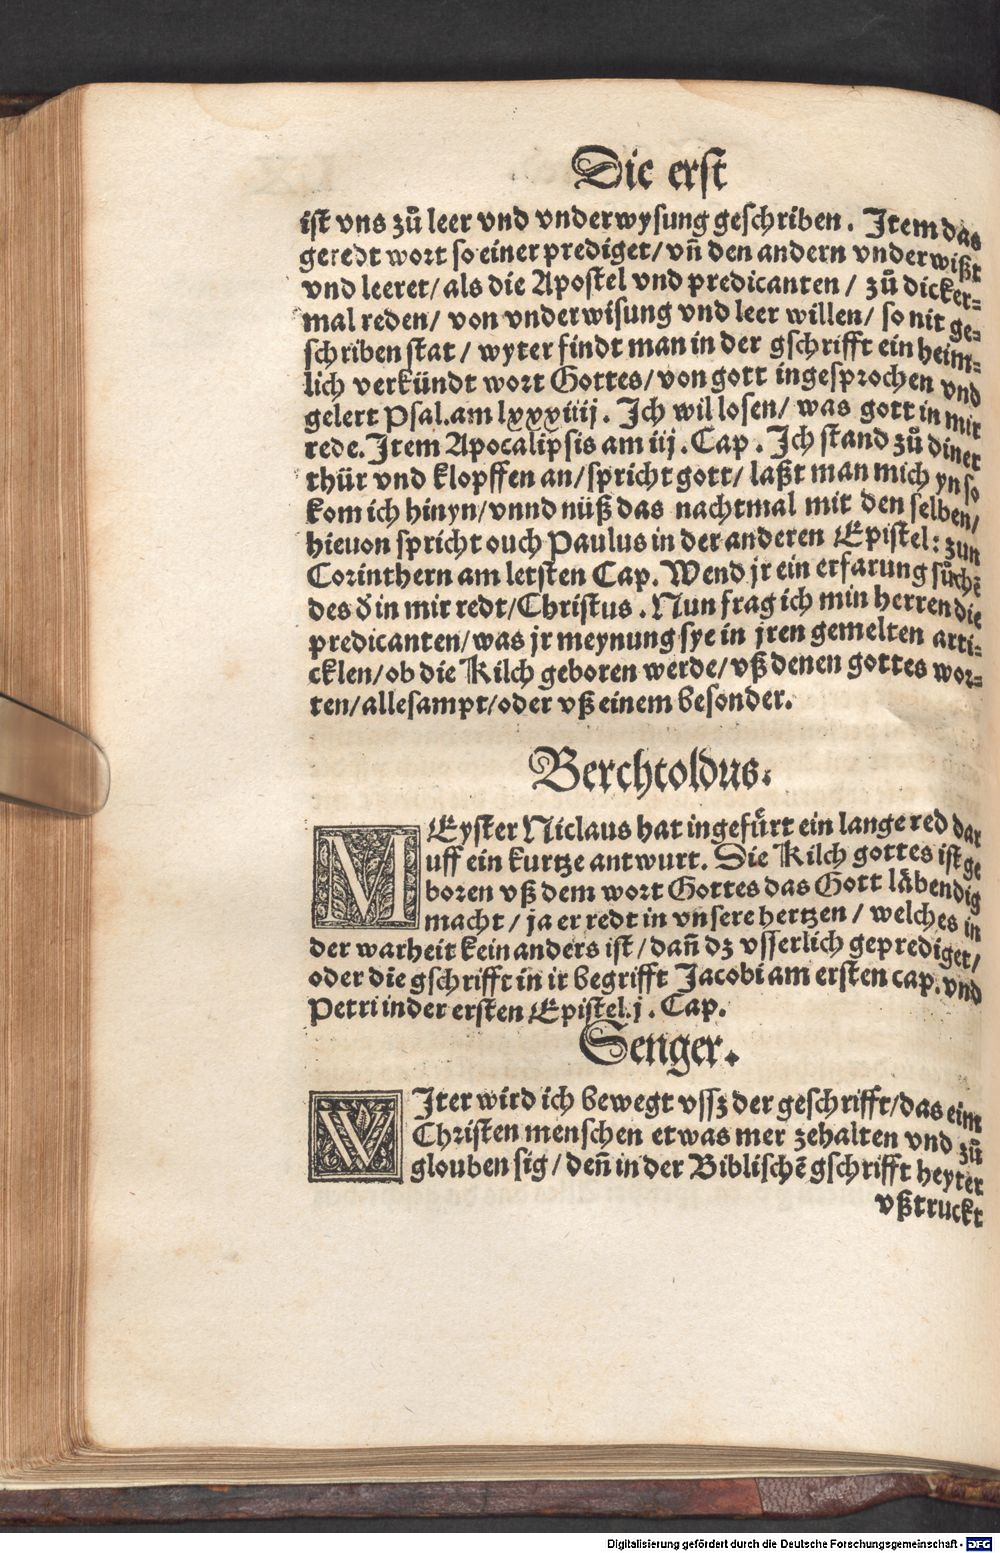 Die erst
ist vns zů leer vnd vnderwysung geschriben. Item das
geredt wort so einer prediget/ vñ den andern vnderwißt
vnd leeret/ als die Apostel vnd predicanten/ zů dicker⸗
mal reden/ von vnderwisung vnd leer willen/ so nit ge⸗
schriben stat/ wyter findt man in der gschrifft ein heim⸗
lich verkündt wort Gottes/ von gott ingesprochen vnd
gelert Psal. am lxxxiiij. Ich wil losen/ was gott in mir
rede. Item Apocalipsis am iij. Cap. Ich stand zů diner
thür vnd klopffen an/ spricht gott/ laßt man mich yn so
kom ich hinyn/ vnnd nüß das nachtmal mit den selben/
hieuon spricht ouch Paulus in der anderen Epistel: zun
Corinthern am letsten Cap. Wend jr ein erfarung sůchē
des ð in mir redt/ Christus. Nun frag ich min herren die
predicanten/ was jr meynung sye in jren gemelten arti⸗
cklen/ ob die Kilch geboren werde/ vß denen gottes wor⸗
ten/ allesampt/ oder vß einem besonder.
Berchtoldus.
MEyster Niclaus hat ingefůrt ein lange red dar
uff ein kurtze antwurt. Die Kilch gottes ist ge
boren vß dem wort Gottes das Gott läbendig
macht/ ja er redt in vnsere hertzen/ welches in
der warheit kein anders ist/ dañ dz vsserlich geprediget/
oder die gschrifft in ir begrifft Jacobi am ersten cap. vnd
Petri in der ersten Epistel. j. Cap.
Senger.
WIter wird ich bewegt vssz der geschrifft/ das eim
Christen menschen etwas mer zehalten vnd zů
glouben sig/ deñ in der Biblischē gschrifft heyter
vßtruckt
Digitalisierung gefördert durch die Deutsche Forschungsgemeinschaft - DFG